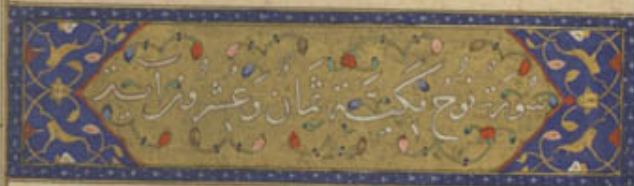 سُورَةُ نُوحٍ مَكِّيَّةٌ ثَمَانٌ وَعِشْرُونَ آيَةً